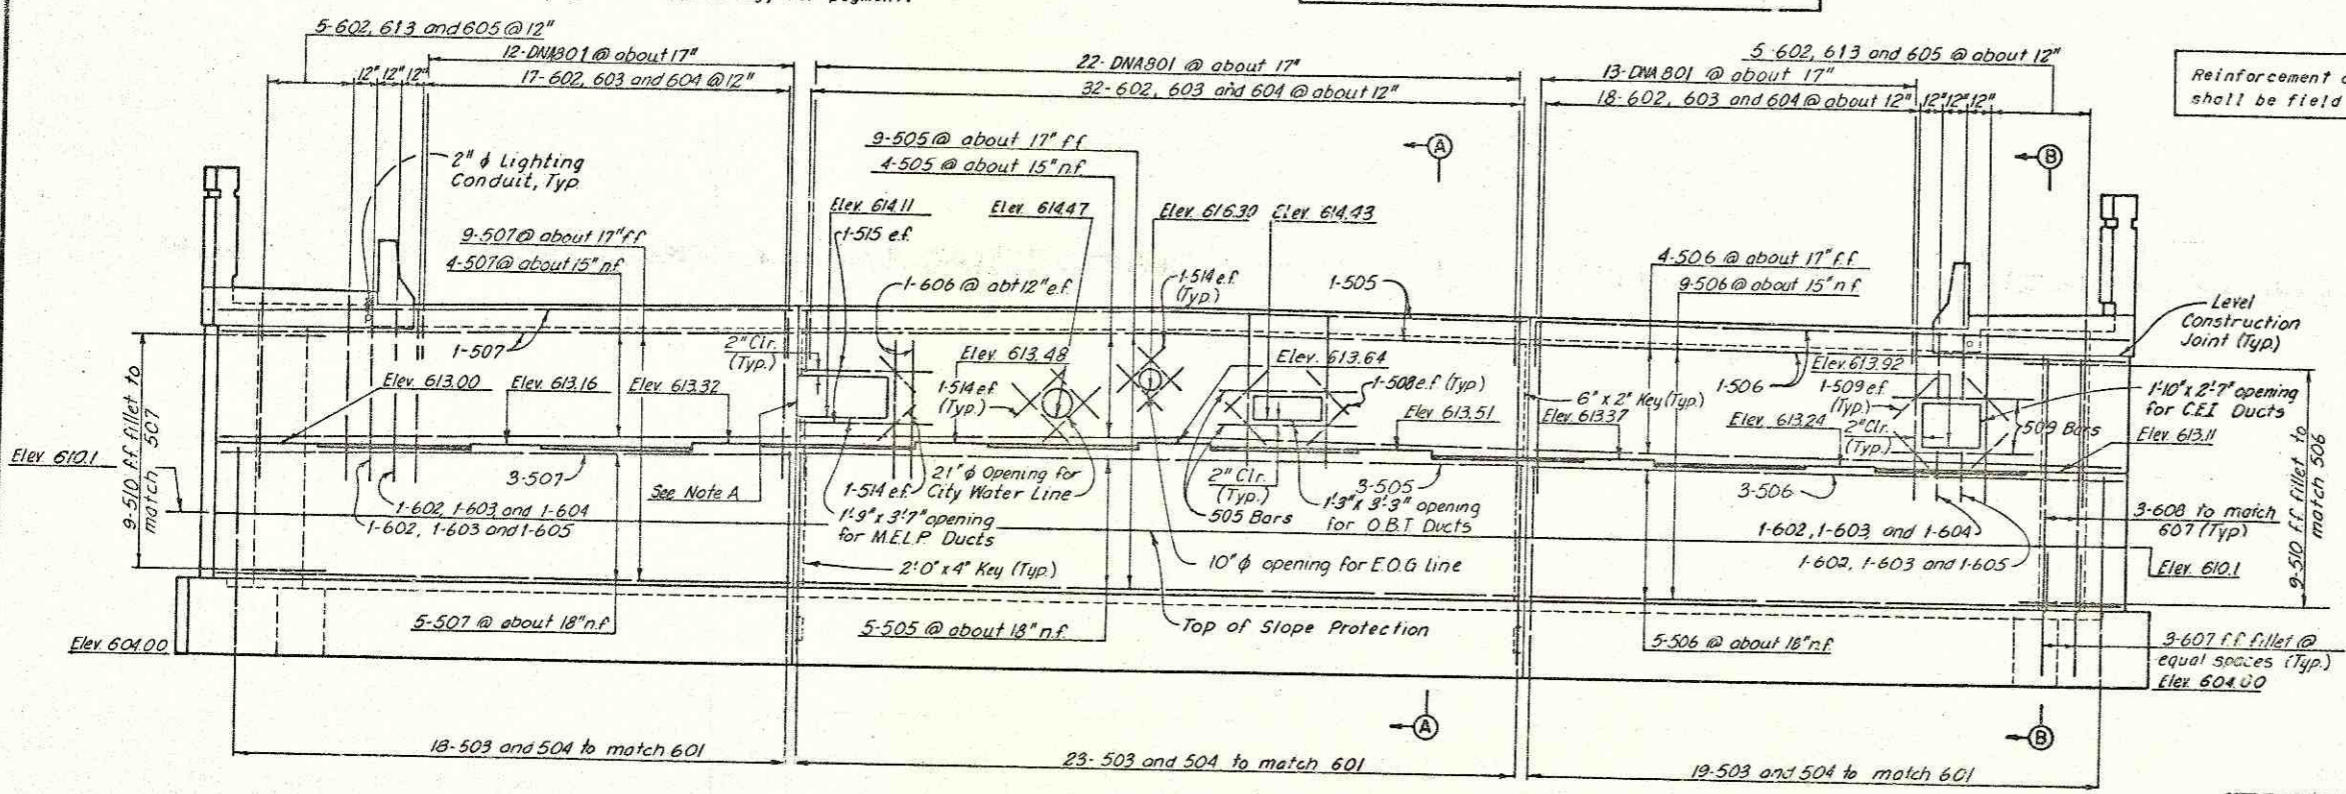 5-602, 613 and 605 @ 12"
12-DNA801 @ about 17"
12" 12" 12"
17-602, 603 and 604 @ 12"
22-DNA801 @ about 17"
32-602, 603 and 604 @ about 12"
5-602, 613 and 605 @ about 12"
13-DNA801 @ about 17"
18-602, 603 and 604 @ about 12"
12" 12" 12"
Reinforcement
shall be field
2" ϕ Lighting
Conduit, Typ.
9-505 @ about 17" f.f.
4-505 @ about 15" n.f.
A
B
Elev. 614.11
Elev. 614.47
Elev. 616.30
Elev. 614.43
1-515 e.f.
9-507 @ about 17" f.f.
4-507 @ about 15" n.f.
1-606 @ abt 12" e.f.
1-514 e.f.
(Typ.)
1-505
4-506 @ about 17" f.f.
9-506 @ about 15" n.f.
Level
Construction
Joint (Typ.)
1-507
2" Clr.
(Typ.)
Elev. 613.48
Elev. 613.64
Elev. 613.92
9-510 f.f. fillet to
match 507
Elev. 613.00
Elev. 613.16
Elev. 613.32
1-514 e.f.
(Typ.)
1-508 e.f. (Typ.)
6" x 2" Key (Typ.)
1-506
1-509 e.f.
(Typ.)
1'-10" x 2'-7" opening
for C.E.I. Ducts
Elev. 613.51
Elev. 613.37
Elev. 613.24
2" Clr.
(Typ.)
509 Bars
Elev. 613.11
9-510 f.f. fillet to
match 506
Elev. 610.1
3-507
See Note A
1-514 e.f.
21" ϕ Opening for
City Water Line
2" Clr.
(Typ.)
505 Bars
3-505
1'-3" x 3'-3" opening
for O.B.T. Ducts
3-506
1-602, 1-603 and 1-604
1-602, 1-603 and 1-605
1'-9" x 3'-7" opening
for M.E.L.P. Ducts
1-602, 1-603, and 1-604
1-602, 1-603 and 1-605
3-608 to match
607 (Typ)
2'-0" x 4" Key (Typ.)
10" ϕ opening for E.O.G. Line
Elev. 610.1
5-507 @ about 18" n.f.
5-505 @ about 18" n.f.
Top of Slope Protection
5-506 @ about 18" n.f.
3-607 f.f. fillet @
equal spaces (Typ.)
Elev. 604.00
Elev. 604.00
A
B
18-503 and 504 to match 601
23-503 and 504 to match 601
19-503 and 504 to match 601